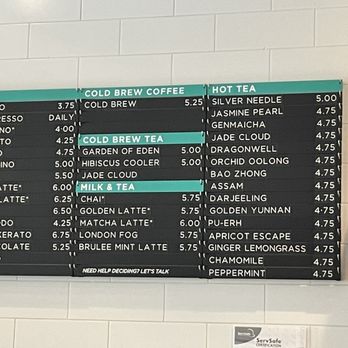 3.75
RESSO DAILY
4.00
4.25
4.75
5.00
5.50
LATTE* 6.00
LATTE* 6.25
6.50
4.25
6.75
5.25
COLD BREW COFFEE
COLD BREW 5.25
COLD BREW TEA
GARDEN OF EDEN 5.00
HIBISCUS COOLER 5.00
JADE CLOUD 5.00
MILK & TEA
CHAI* 5.75
GOLDEN LATTE* 5.75
MATCHA LATTE* 6.00
LONDON FOG 5.75
BRULEE MINT LATTE 5.75
NEED HELP DECIDING? LET'S TALK
HOT TEA
SILVER NEEDLE 5.00
JASMINE PEARL 4.75
GENMAICHA 4.75
JADE CLOUD 4.75
DRAGONWELL 4.75
ORCHID OOLONG 4.75
BAO ZHONG 4.75
ASSAM 4.75
DARJEELING 4.75
GOLDEN YUNNAN 4.75
PU-ERH 4.75
APRICOT ESCAPE 4.75
GINGER LEMONGRASS 4.75
CHAMOMILE 4.75
PEPPERMINT 4.75
ServSafe